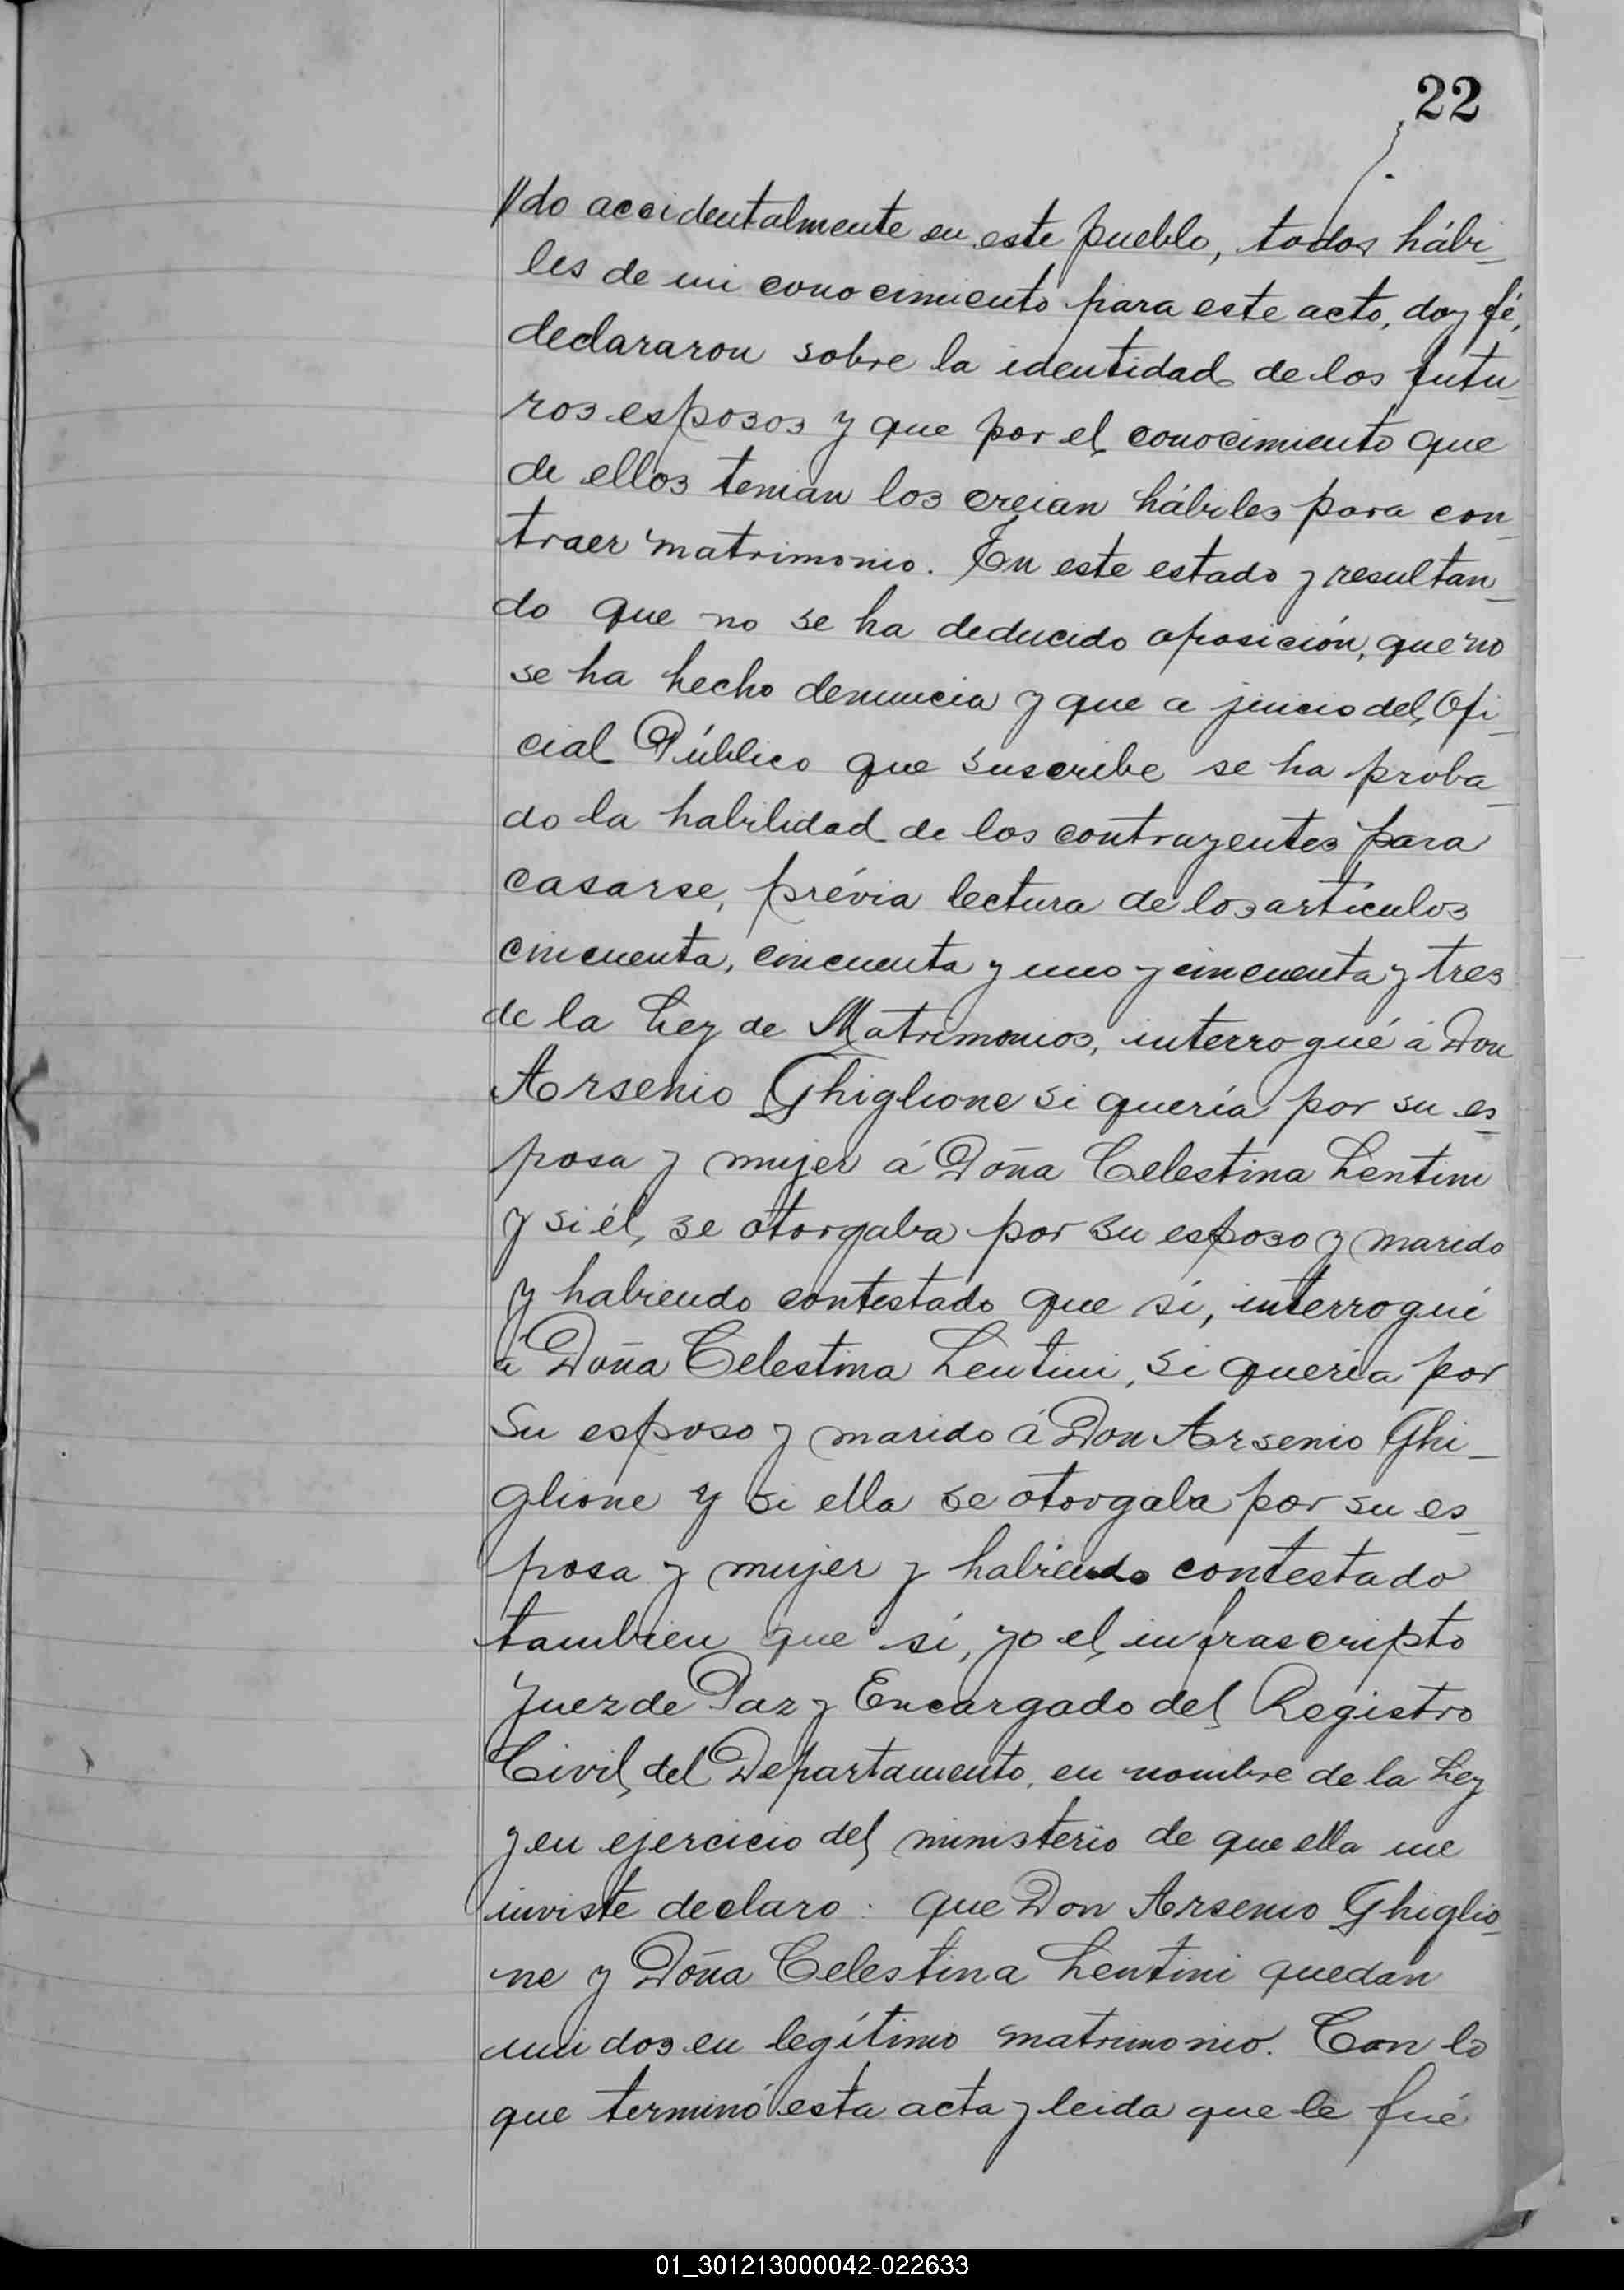 22
//do accidentalmente en este pueblo, todos hábi_
les de mi conocimiento para este acto, doy fé,
declararon sobre la identidad de los futu_
ros esposos y que por el conocimiento que
de ellos tenian los creian hábiles para con_
traer matrimonio. En este estado y resultan_
do que no se ha deducido oposición, que no
se ha hecho denuncia y que a juicio del Ofi_
cial Público que suscribe se ha proba_
do la habilidad de los contrayentes para
casarse, prévia lectura de los artículos
cincuenta, cincuenta y uno y cincuenta y tres
de la Ley de Matrimonios, interrogué á Don
Arsenio Ghiglione si quería por su es_
posa y mujer á Doña Celestina Lentini
y si él, se otorgaba por su esposo y marido
y habiendo contestado que sí, interrogué
a Doña Celestina Lentini, si quería por
su esposo y marido á Don Arsenio Ghi_
glione y si ella se otorgaba por su es_
posa y mujer y habiendo contestado
tambien que sí, yo el infrascripto
Juez de Paz y Encargado del Registro
Civil, del Departamento, en nombre de la Ley
y en ejercicio del ministerio de que ella me
inviste declaro: que Don Arsenio Ghiglio_
ne y Doña Celestina Lentini quedan
unidos en legítimo matrimonio. Con lo
que terminó esta acta y leida que le fué
01_301213000042-022633